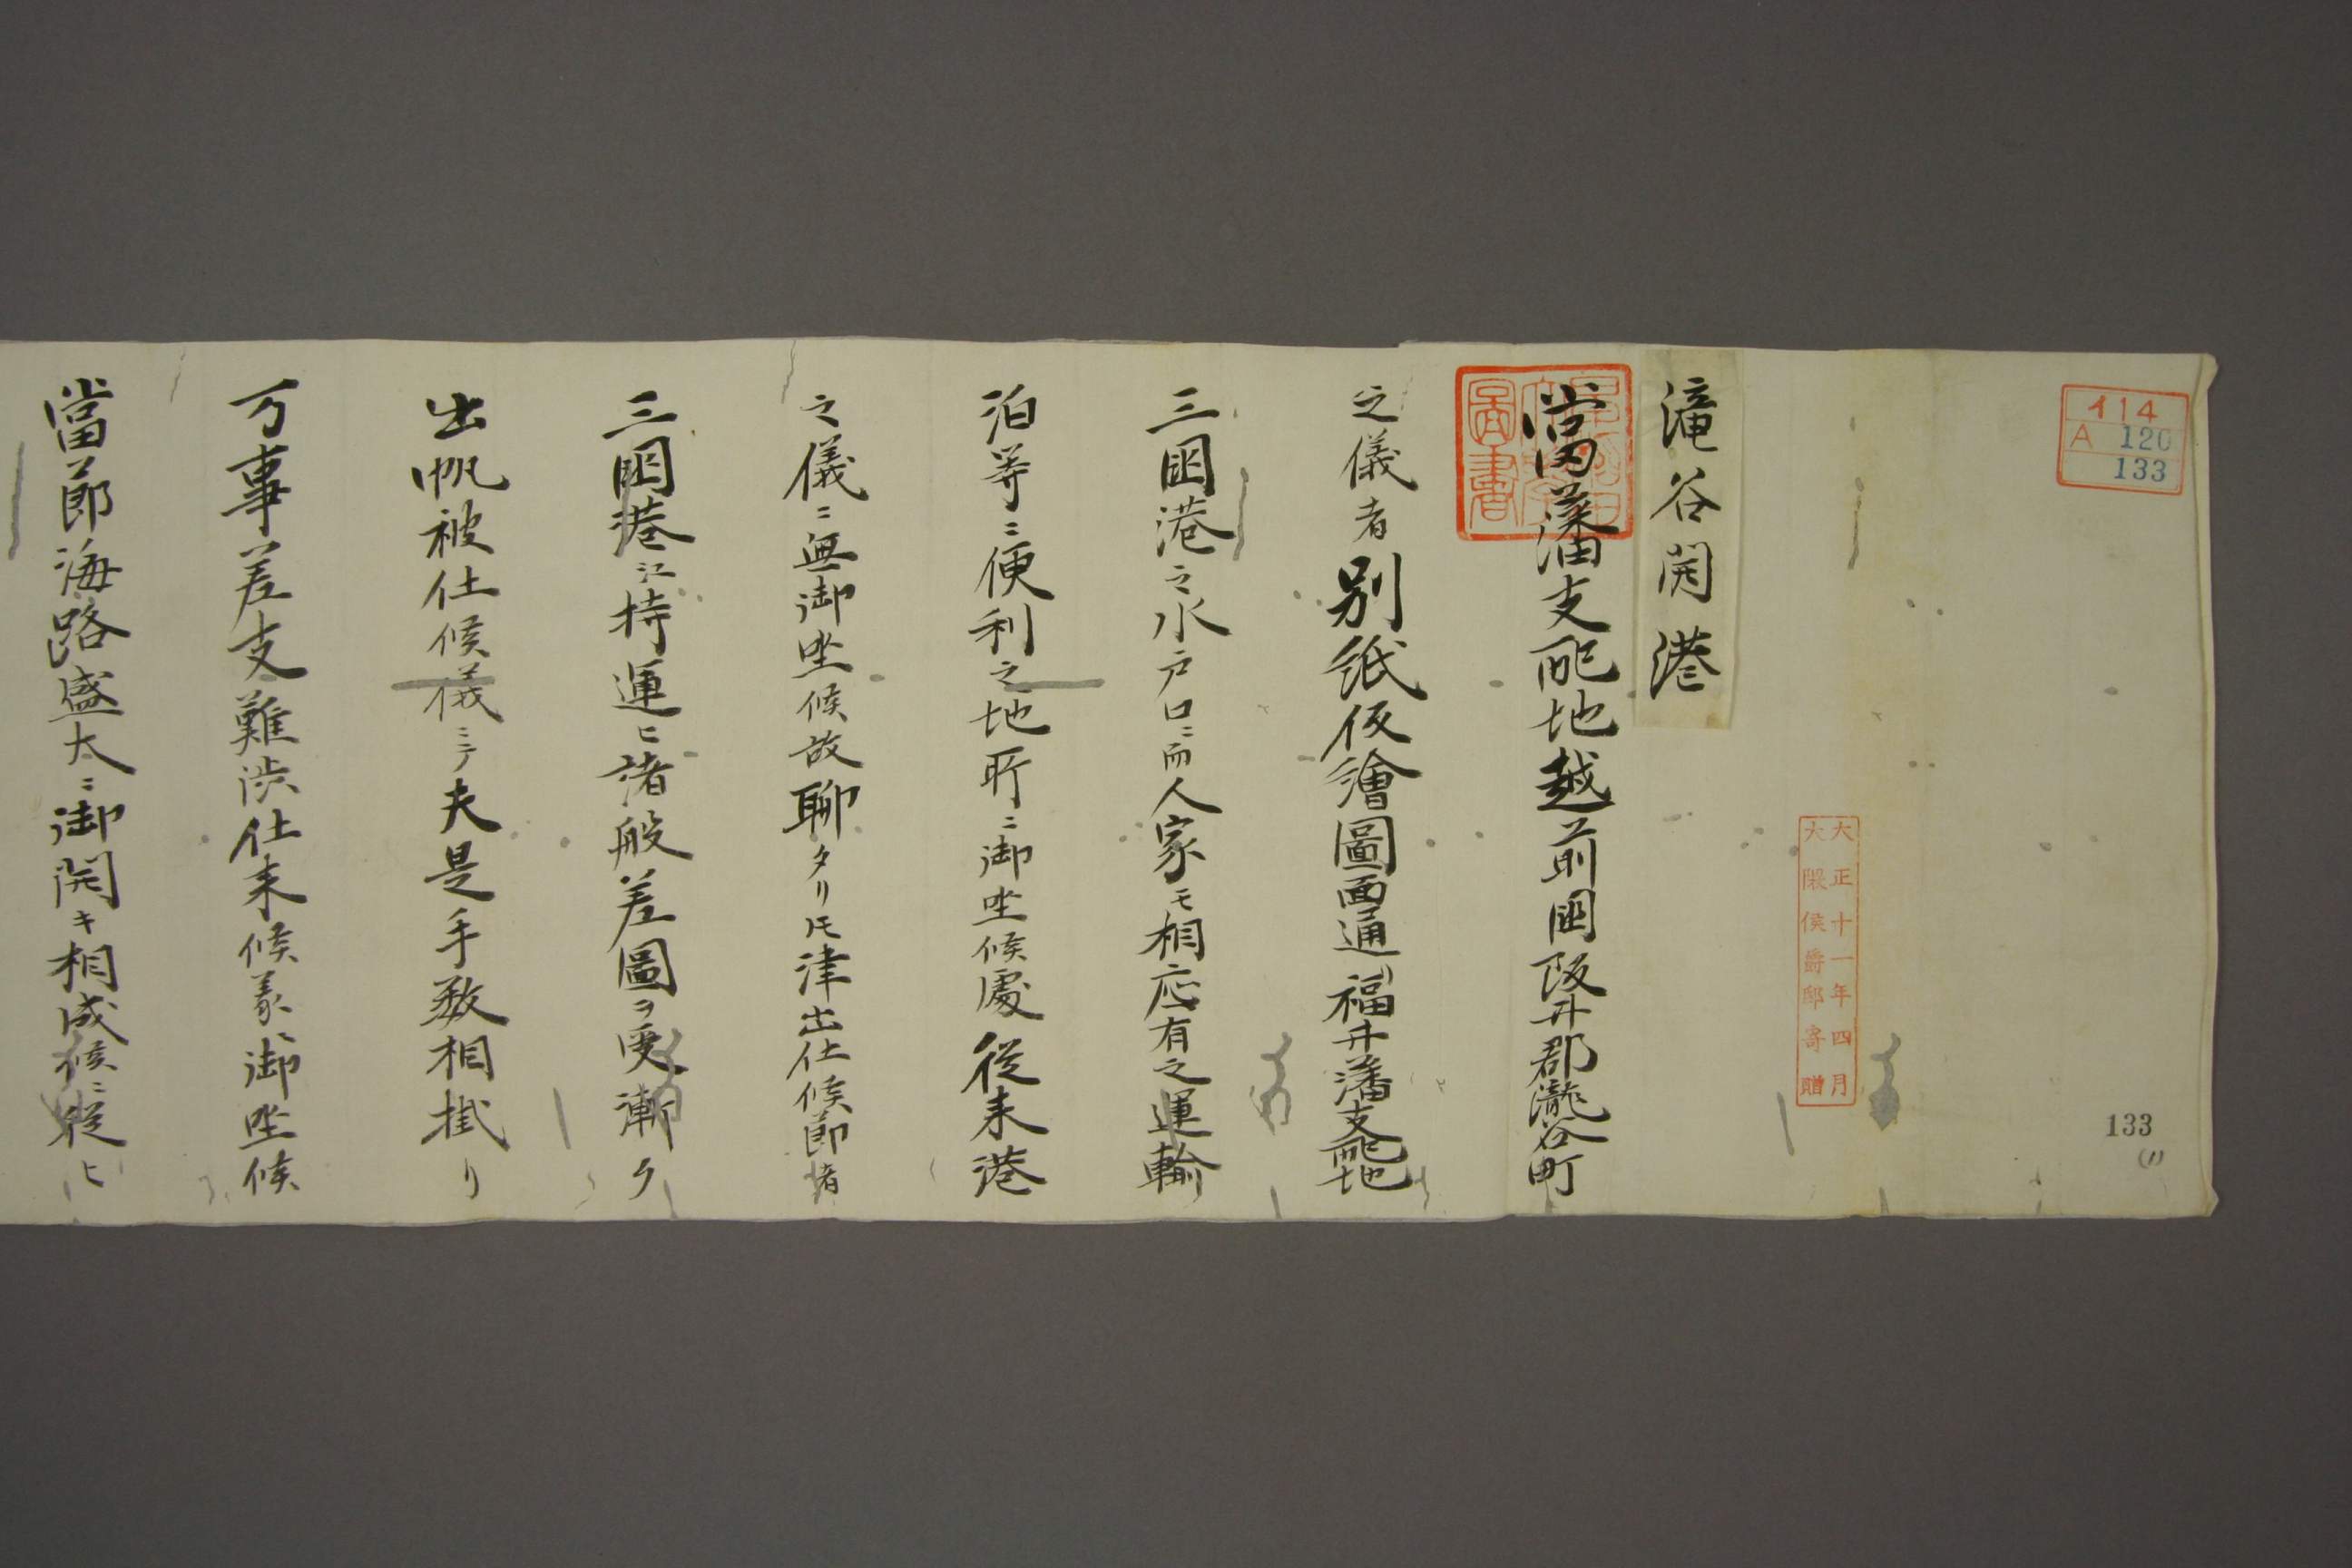 イ14
A 120
133
大正十一年四月
大隈侯爵邸寄贈
133
(1)
滝谷開港
當藩支配地越前国阪井郡瀧谷町
之儀者別紙仮繪圖面通リ福井藩支配地
三国港之水戸口ニ而人家モ相応有之運輸
泊等ニ便利之地所ニ御坐候處従来港
之儀ニ無御坐候故聊タリ𪜈津出仕候節者
三国港江持運ヒ諸般差圖ヲ受漸ク
出帆被仕候儀ニテ夫是手数相掛リ
万事差支難渋仕来候義ニ御坐候
當節海路盛大ニ御開キ相成候ニ従ヒ